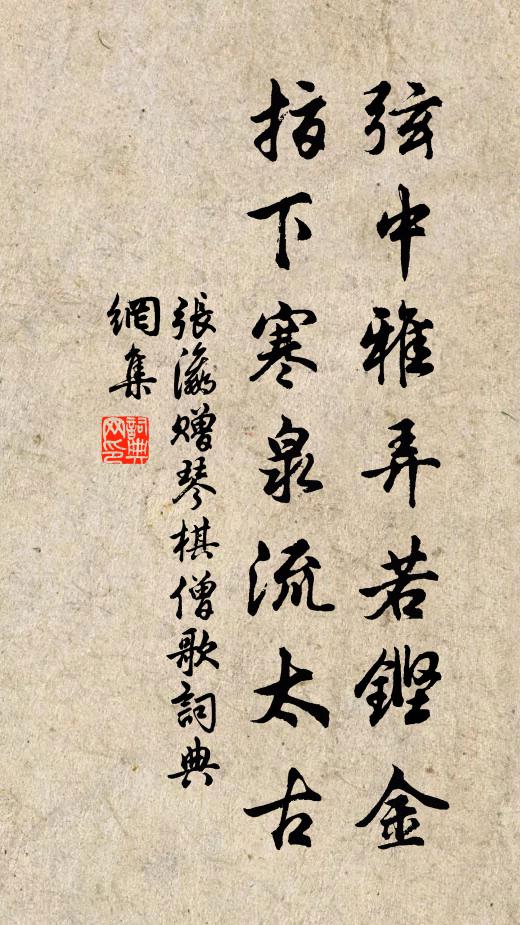 弦中雅弄若鏗金
指下寒泉流太古
張瀛贈琴棋僧歌詞典
網集
詞典網印